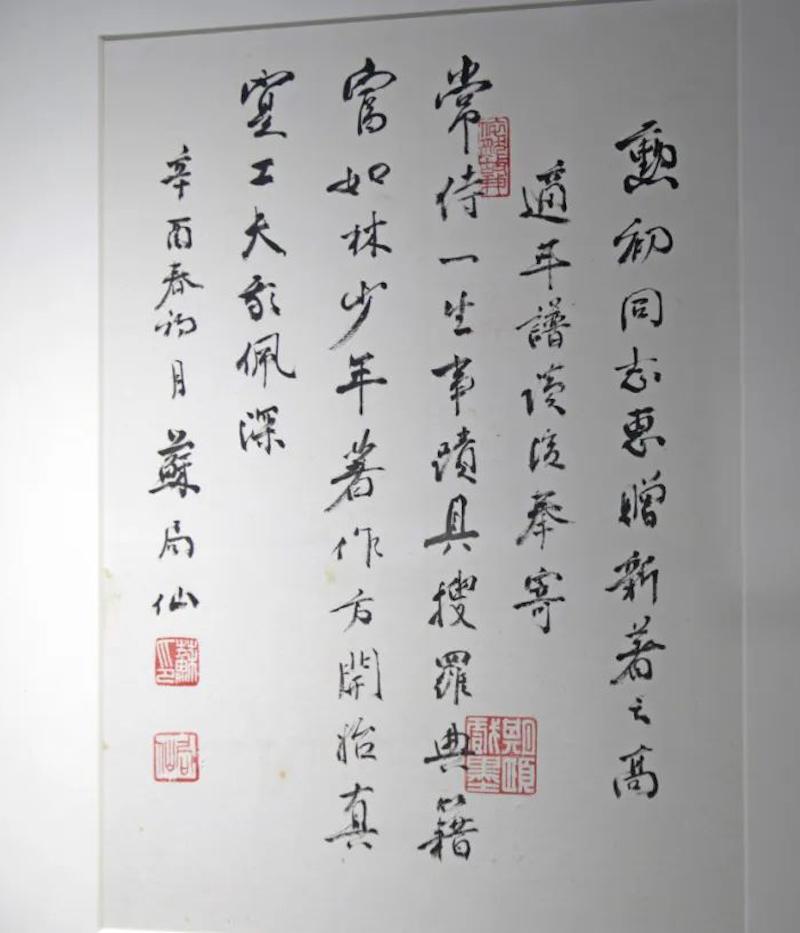 勳初同志惠贈新著之高
適年譜讀後奉寄
常侍一生事蹟具搜羅典籍
富如林少年著作方開始真
寔工夫敬佩深
辛酉春初月 蘇局仙
局仙